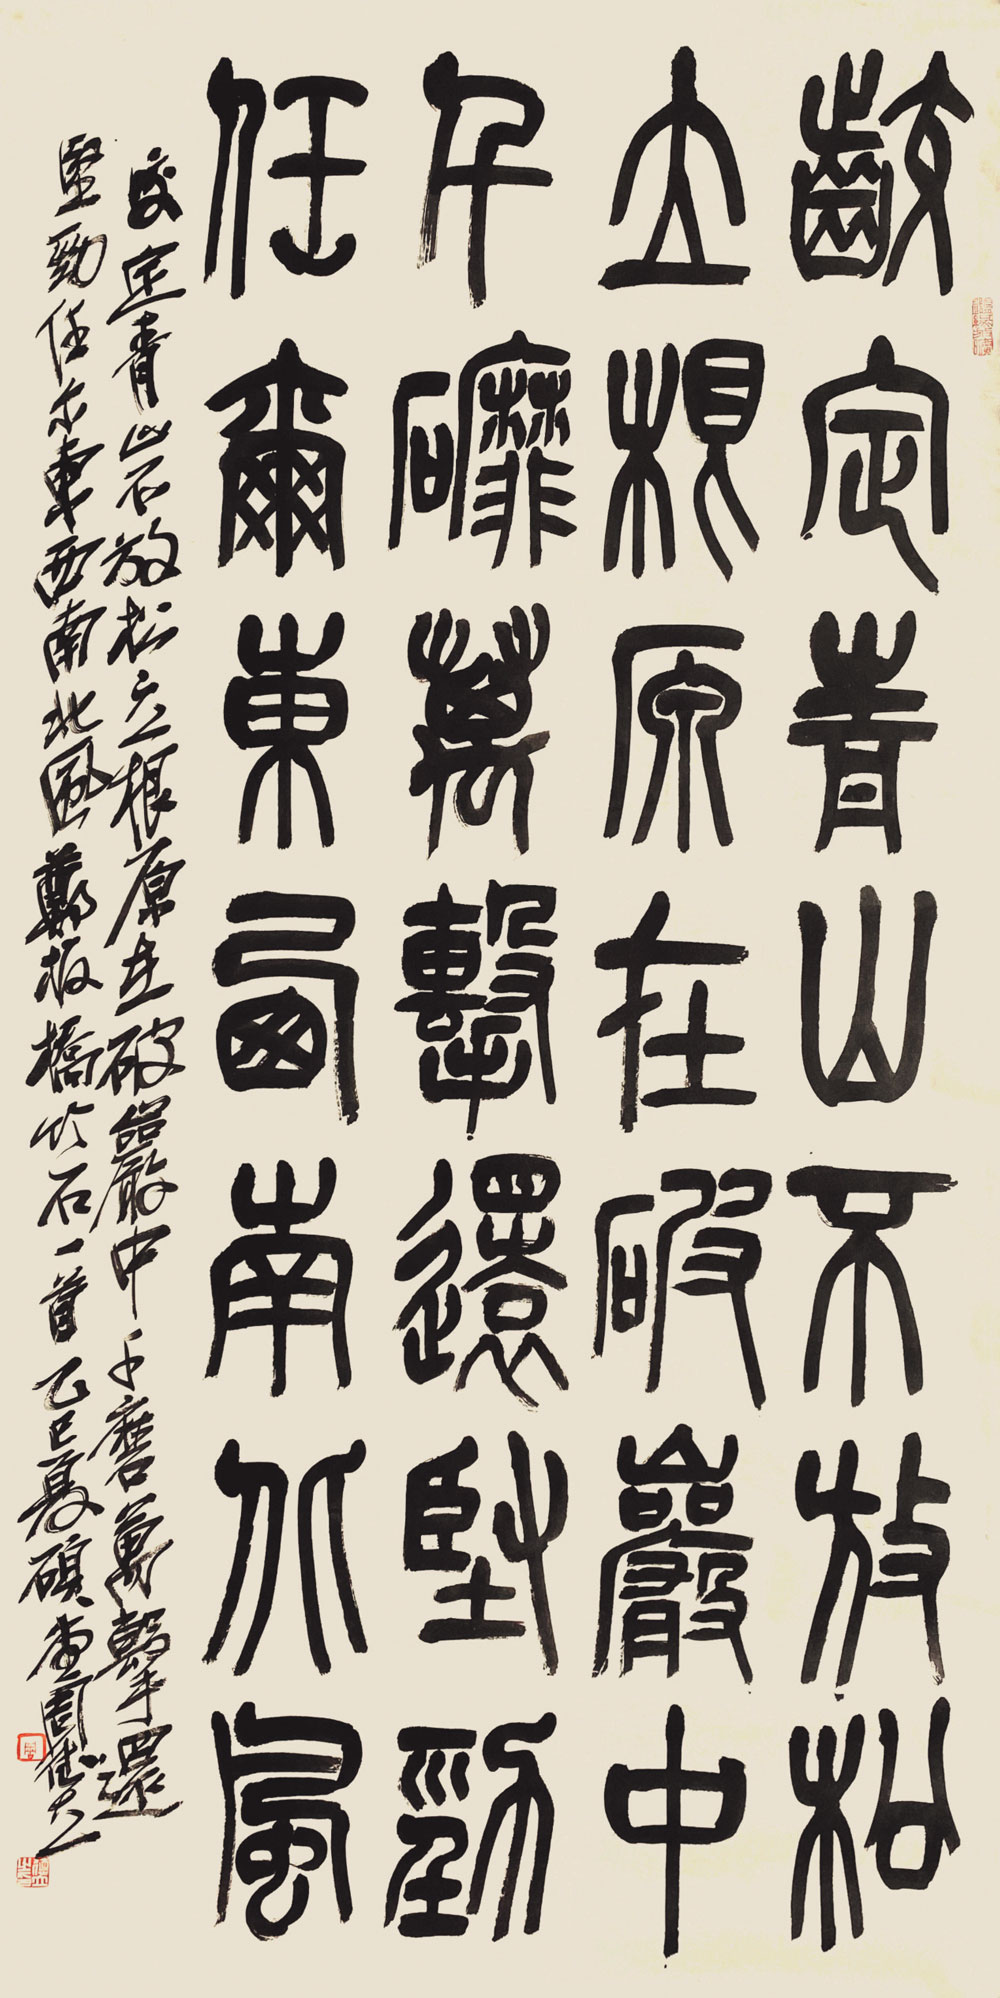 齩定青山不放松
立根原在破巖中
千䃺萬擊還堅勁
任爾東西南北風
咬定青山不放松立根原在破巖中千磨萬擊還
堅勁任尔東西南北風鄭板橋竹石一首乙巳夏碩